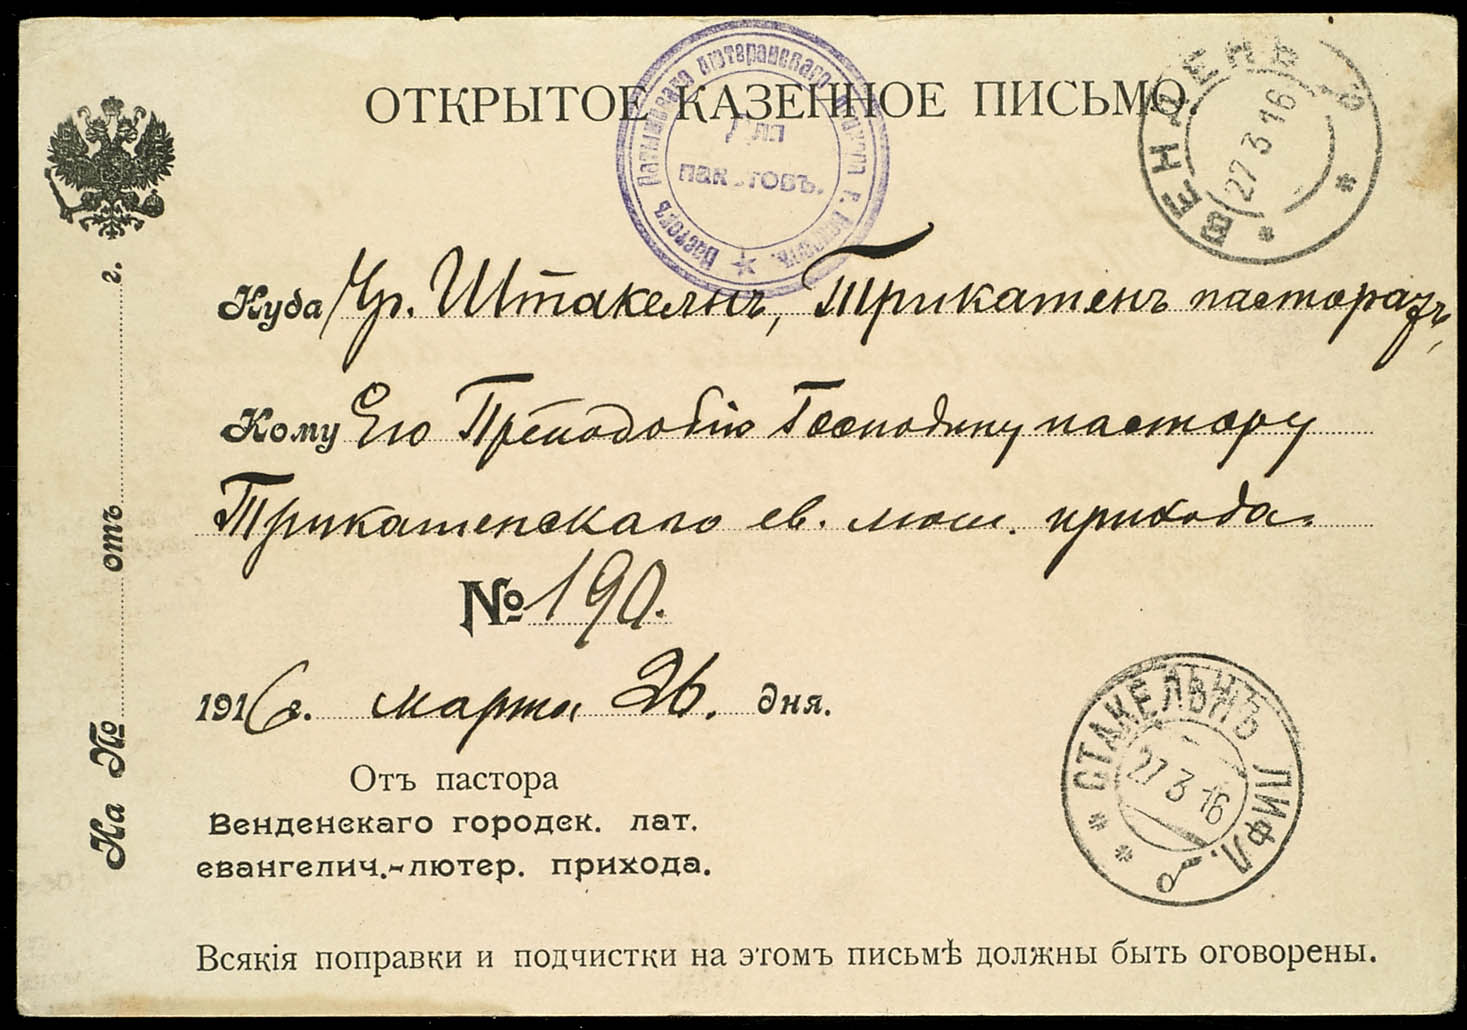 ОТКРЫТОЕ КАЗЕННОЕ ПИСЬМО.
Пасторъ Латышскаго лютеранскаго
Для
пакетовъ.
ВЕНДЕНЪ
27 3 16
Куда Чр. Штакельнъ, Трикатенъ пасторатъ,
Кому Его Преподобію Господину пастору
Трикатенскаго ев. лют. прихода.
№ 190.
1916 г. марта 26. дня.
Отъ пастора
Венденскаго городск. лат.
евангелич.-лютер. прихода.
СТАКЕЛЬНЪ ЛИФЛ.
27 3 16
На № отъ г.
Всякія поправки и подчистки на этомъ письмѣ должны быть оговорены.